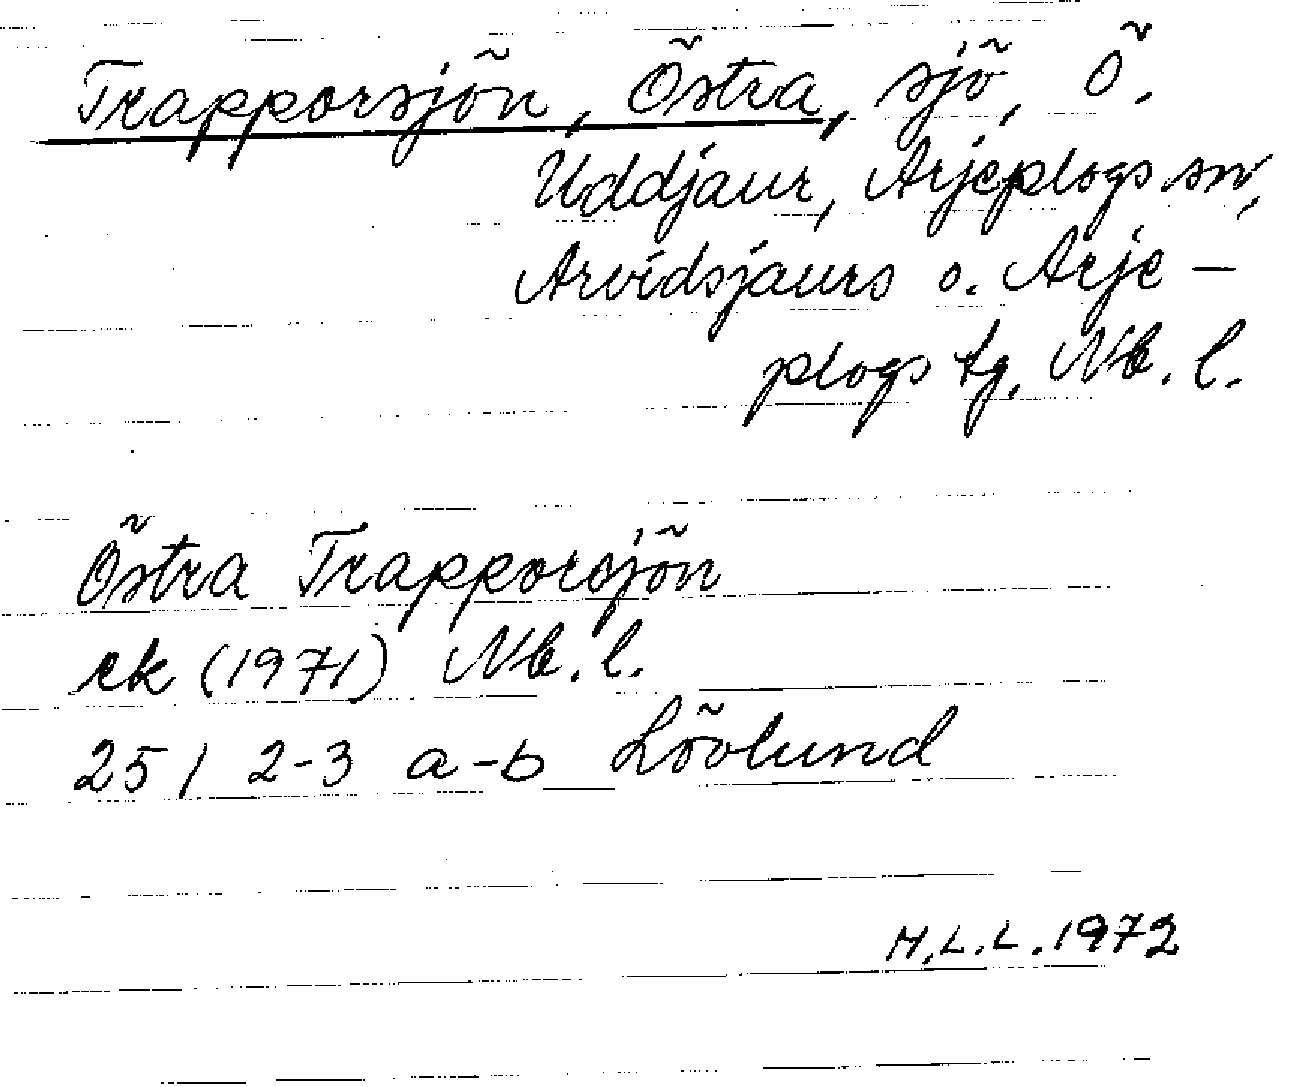 Trapporsjön, Östra, sjö, Ö.
Uddjaur, Arjeplogs sn,
Arvidsjaurs o. Arje-
plogs tg, Nb. l.
Östra Trapporsjön
ek (1971) Nb. l.
25 I 2-3 a-b Lövlund
H.L.L. 1972